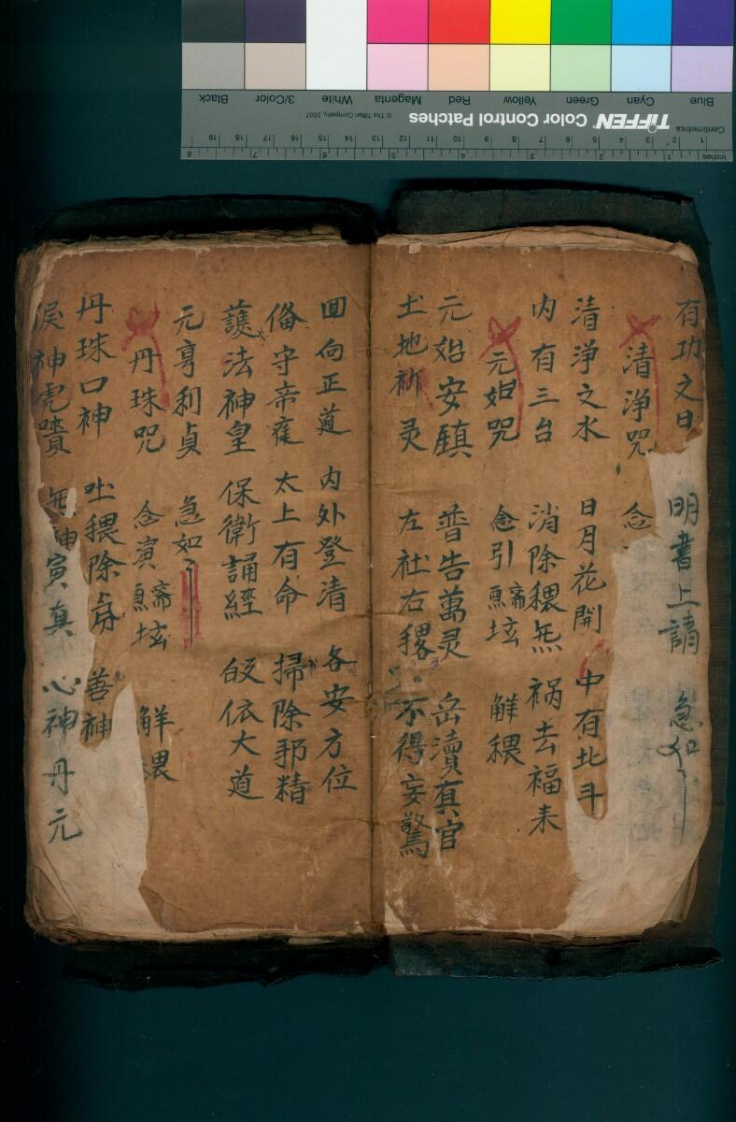 有功之日 明書上請 急如
清淨咒 念
清淨之水 日月花開 中有北斗
内有三台 消除穢炁 禍去福未
元始咒 念引 解穢
元始安鎮 普告萬灵 岳瀆真官
土地祈灵 左社右稷 不得妄驚
回向正道 内外登清 各安方位
俻守帝𨓆 太上有命 掃除邪精
護法神皇 保衛誦經 皈依大道
元亨利貞 急如
丹珠咒 念演 解穢
丹珠口神 吐穢除 善神
神虎賁 炁神寅真 心神丹元
Blue Cyan Green Yellow Red Magenta White 3/Color Black
TIFFEN Color Control Patches © The Tiffen Company, 2007
Centimetres
Inches